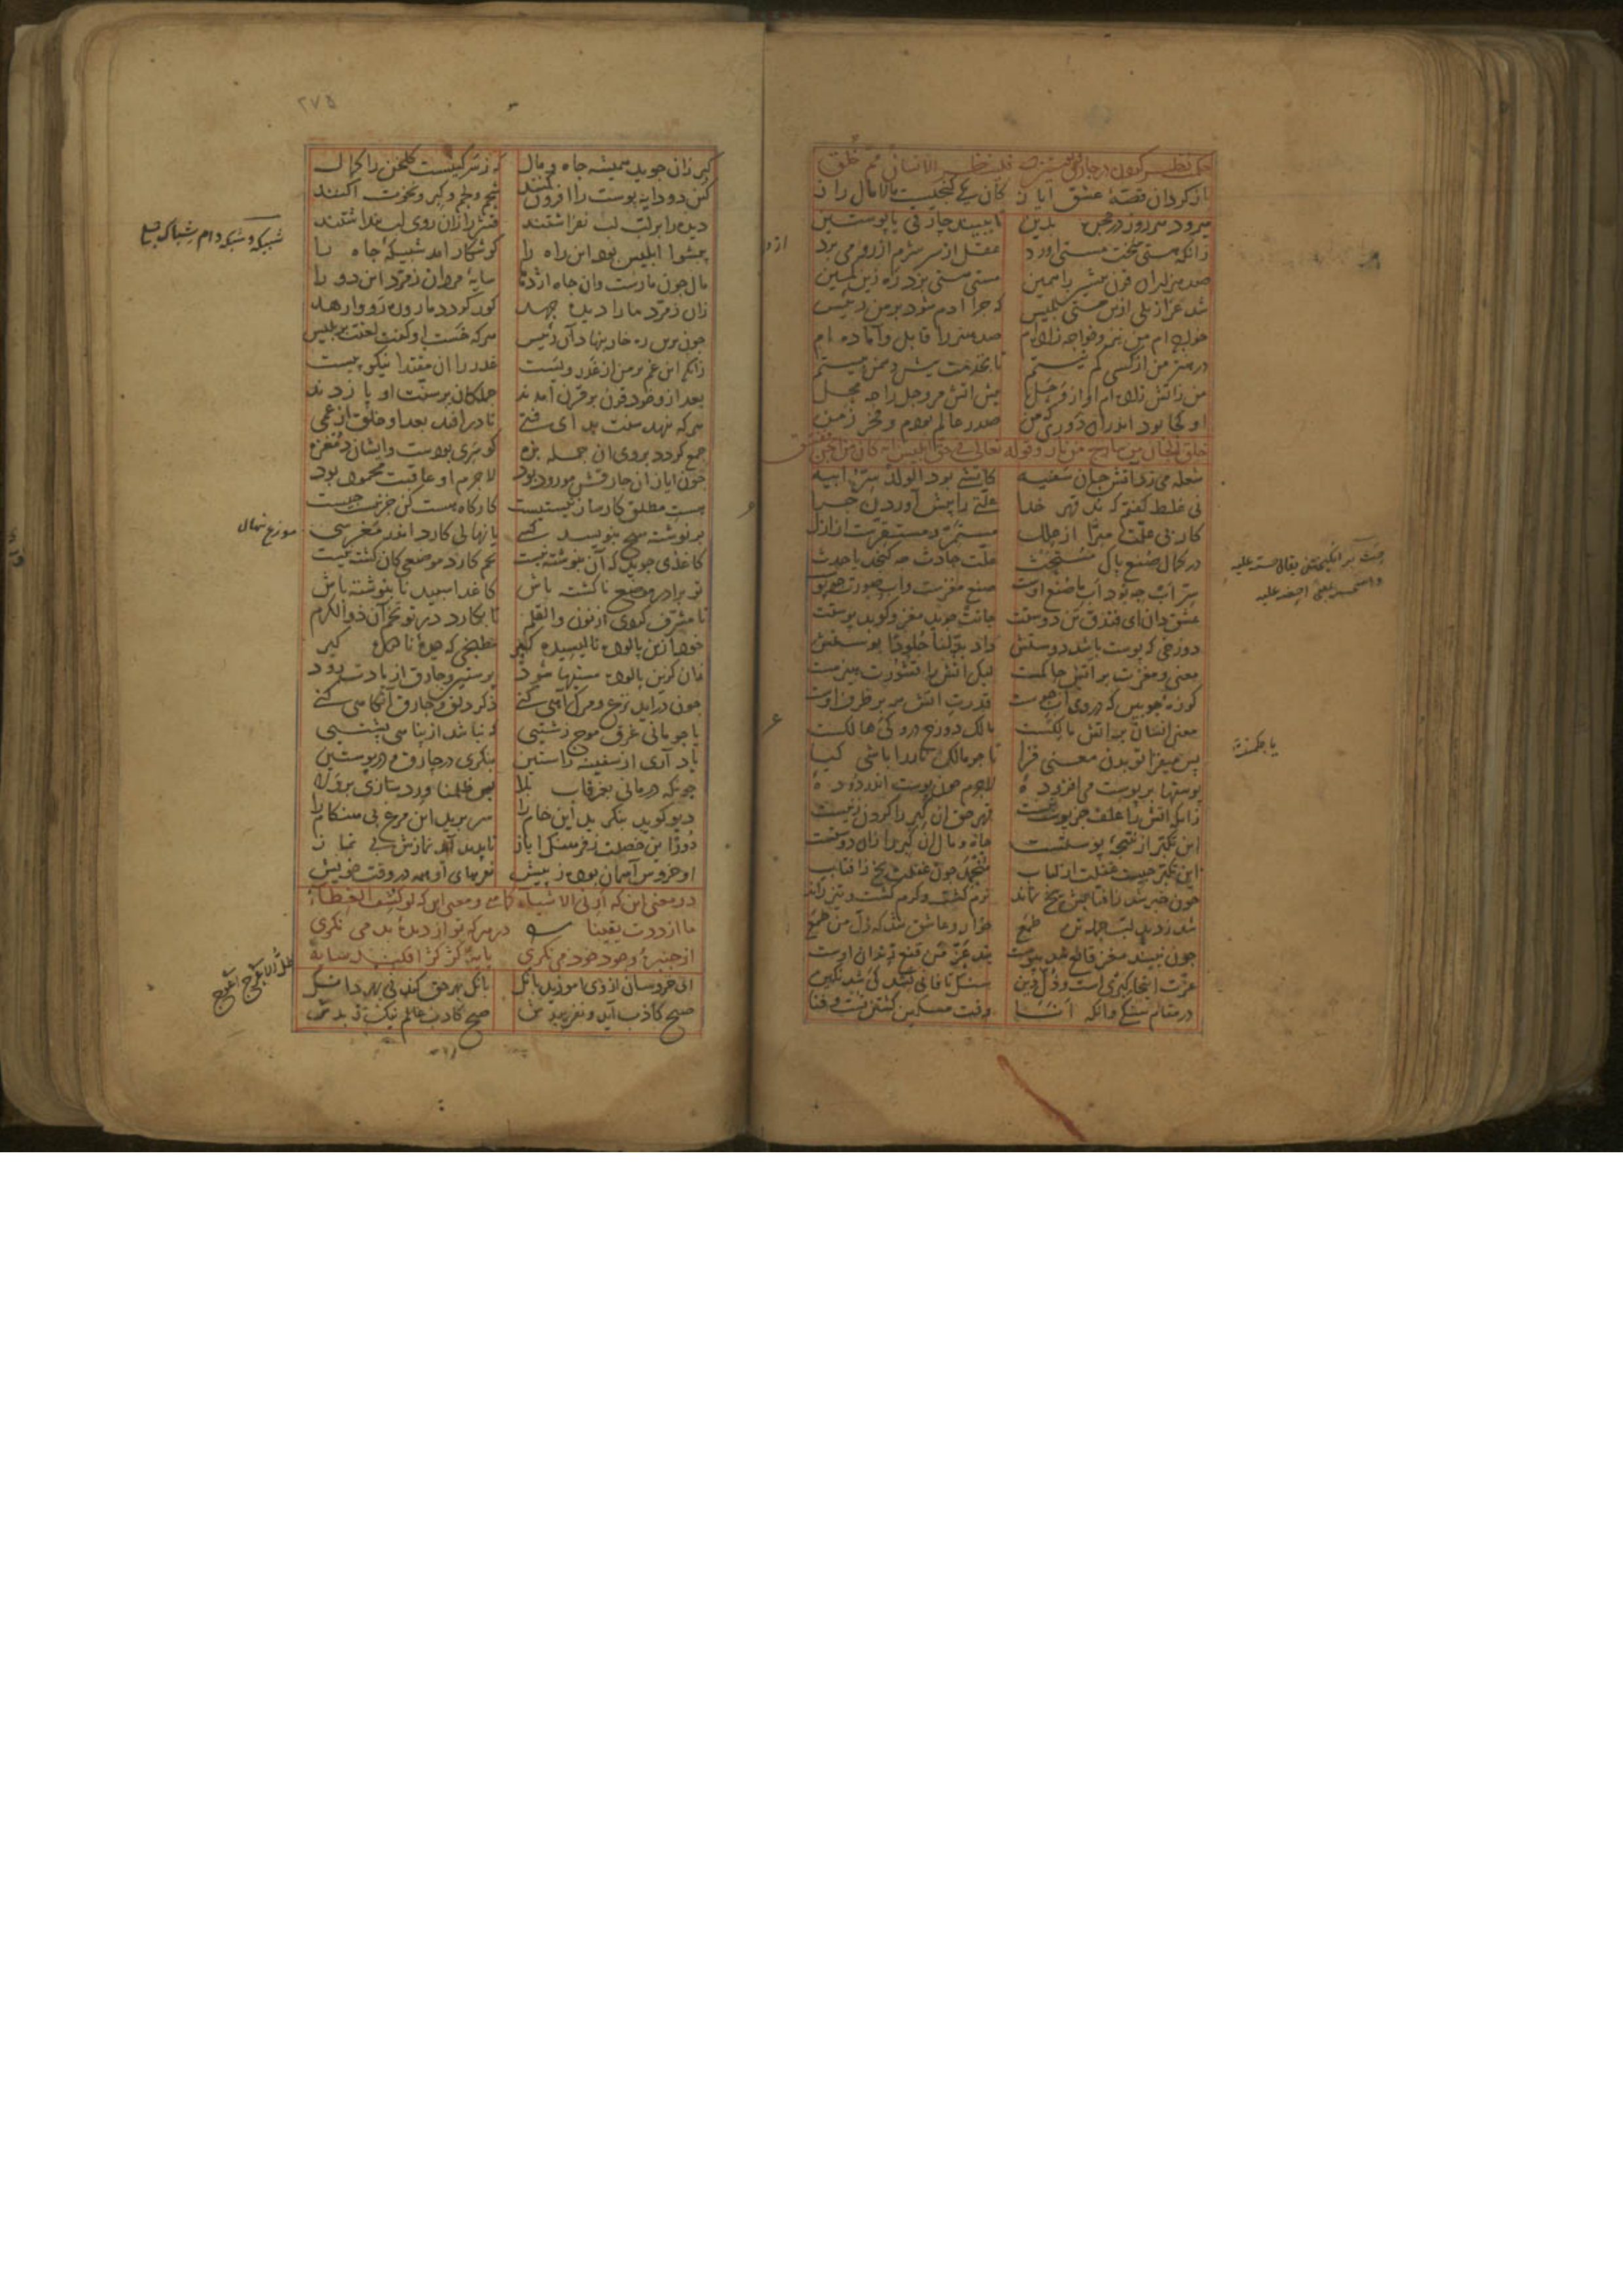 حکمت نظر کردن در چارق و پوستین که فلینظر الانسان مم خلق
باز کردان قصه عشق ایاز کان یکی کنجیست مالامال راز
میرود هر روز در حجره برین تا ببیند چارقی با پوستین
زانکه هستی سخت مستی اورد عقل از سر شرم از رو می برد
صد هزاران قرن پیشین را همین مستی هستی بزد ره زین کمین
شد عزازیلی ازین مستی بلیس که چرا ادم شود بر من رئیس
خواجه ام من نیز و خواجه زاده ام صد هنر را قابل و آماده ام
در هنر من از کسی کم نیستم تا بخدمت پیش دشمن بیستم
من ز اتش زاده ام او از وحل پیش اتش مر وحل را چه محل
او کجا بود اندران دوری که من صدر عالم بودم و فخر زمن
خلق الجان من مارج من نار و قوله تعالی فی حق ابلیس انه کان من الجن ففسق
شعله می زد اتش جان سفیه کاتشی بود الولد سر ابیه
نی غلط کفتم که بد قهر خدا علتی را پیش آوردن چرا
کار بی علت مبرا از علل مستمر و مستقرست از ازل
در کمال صنع پاک مستحث علت حادث چه کنجد یا حدث
سر اب چه بود اب ما صنع اوست صنع مغزست و اب صورت چو پوست
عشق دان ای فندق تن دوستت جانت جوید مغز و کوبد پوستت
دوزخی که پوست باشد دوستش داد بدلنا جلودا پوستش
معنی و مغزت بر اتش حاکمست لیک اتش را قشورت هیزمست
کوزه چوبین که در وی آب جوست قدرت اتش همه بر ظرف اوست
معنی انسان بر اتش مالکست مالک دوزخ درو کی هالکست
پس میفزا تو بدن معنی فزا تا چو مالک باشی اتش را کیا
پوستها بر پوست می افزوده لاجرم چون پوست اندر دوده
زانکه اتش را علف جز پوست نیست قهر حق ان کبر را کردن زنیست
این تکبر از نتیجه پوستست جاه و مال ان کبر را زان دوستست
این تکبر چیست غفلت از لباب منجمد چون غفلت یخ ز افتاب
چون خبر شد ز افتابش یخ نماند نرم کشت و کرم کشت و تیز راند
شد ز دید لب جمله تن طمع خوار و عاشق شد که ذل من طمع
چون نبیند مغز قانع شد بپوست بند عز من قنع زندان اوست
عزت اینجا کبریست و ذل دین سنک تا فانی نشد کی شد نکین
در مقام سنکی وانکه انا وقت مسکین کشتن تست و فنا
۲۷۵
کبر زان جوید همیشه جاه و مال که ز سرکینست کلخن را کمال
کین دو دایه پوست را افزون کنند شحم و لحم و کبر و نخوت اکنند
دیده را بر لب لب نفراشتند قشر را زان روی لب پنداشتند
پیشوا ابلیس بود این راه را کو شکار امد شبیکه جاه را
مال چون مارست وان جاه اژدها سایه مردان زمرد این دو را
زان زمرد مار را دیده جهد کور کردد مار و ره رو وارهد
چون برین ره خار بنهاد آن رئیس هر که خست او کفت لعنت بر بلیس
زانکه این غم بر من از غدر ویست غدر را ان مقتدا نیکو پیست
بعد ازو خود قرن بر قرن امدند جملکان بر سنت او پا زدند
هر که بنهد سنت بد ای فتی تا در افتد بعد او خلق از عمی
جمع کردد بر وی ان جمله بزه کو سری بودست و ایشان دم غزه
چون ایاز ان چارقش مورود بود لاجرم او عاقبت محمود بود
هست مطلق کارساز نیستیست کارکاه هست کن جز نیست چیست
بر نوشته هیچ بنویسد کسی یا نهالی کارد اندر مغرسی
کاغذی جوید که آن بنوشته نیست تخم کارد موضعی کان کشته نیست
تو برادر موضع ناکشته باش کاغد اسپید نابنوشته باش
تا مشرف کردی از نون والقلم تا بکارد در تو تخم آن ذوالکرم
خود ازین پالوده نالیسیده کیر مطبخی که دیده نادیده کیر
زان کزین پالوده مستیها شود پوستین و چارق از یادت رود
چون در آید نزع و مرک آهی کنی ذکر دلق و چارق آنکاهی کنی
تا چو مانی غرق موج زشتیی که نباشد از پناهی پشتیی
یاد آری از سفینه راستین ننکری در چارق و در پوستین
چونکه درمانی بغرقاب بلا پس ظلمنا ورد سازی بر ولا
دیو کوید بنکرید این خام را سر برید این مرغ بی هنکام را
دور این خصلت ز فرهنک ایاز تا پدید آید نمازش بی نماز
او خروس آسمان بوده ز پیش نعرهای او همه در وقت خویش
در معنی این که ارنی الاشیاء کما هی و معنی این که لو کشف الغطاء
ما ازددت یقینا در هر که تو از دیده بد می نکری
از چنبره وجود خود می نکری پایه کژ کژ افکند سایه
ای خروسان از وی آموزید بانک بانک بهر حق کند نی بهر دانک
صبح کاذب آید و نفریبدش صبح کاذب عالم نیک و بدش
شبیکه و شبکه دام شباک جمع
موزع نهال